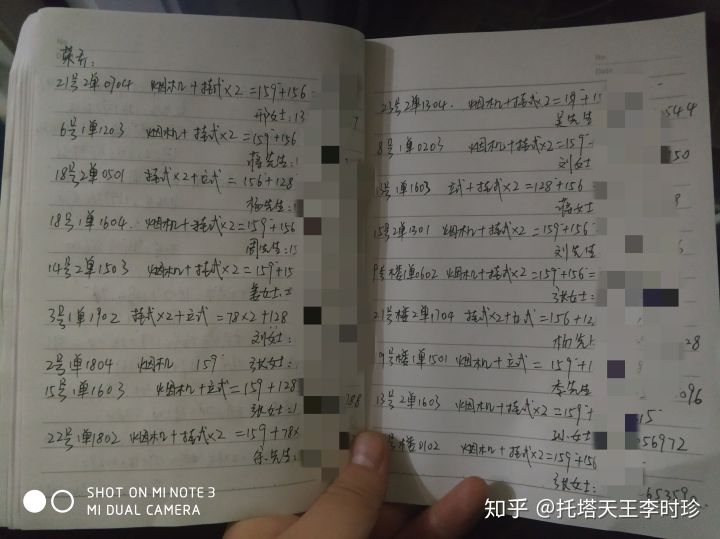 21号2单0704 烟机+挂式×2=159+156=
邢女士:13
6号1单1203 烟机+挂式×2=159+156
蒋先生:1
18号2单0501 挂式×2+立式=156+128
杨先生:
18号1单1604. 烟机+挂式×2=159+156
周先生:15
14号2单1503 烟机+挂式×2=159+15
姜女士:
3号1单1902 挂式×2+立式=78×2+128
刘女士:
2号1单1804 烟机 159 张女士:
15号1单1603 烟机+立式=159+128
张女士:1
288
22号1单1802 烟机+挂式×2=159+78×
余先生:
No.
Date
23号2单1304. 烟机+挂式×2=159+15
吴先生
544
8号1单0203 烟机+挂式×2=159
刘女士
50
号1单1603 立式+挂式×2=128+156
蒋女士
8
15号2单1301 烟机+挂式×2=159+156
刘先生
9号楼1单0602 烟机+挂式×2=159+156=
张女士:
21号楼2单1704 挂式×2+立式=156+12
杨先
28
9号楼1单1501 烟机+立式=159+1
李先生
096
13号2单1603 烟机+挂式×2=159+
女士
15
号楼0102 烟机+挂式×2=159+156
56972
张女士:
65359
SHOT ON MI NOTE 3
MI DUAL CAMERA
知乎 @托塔天王李时珍